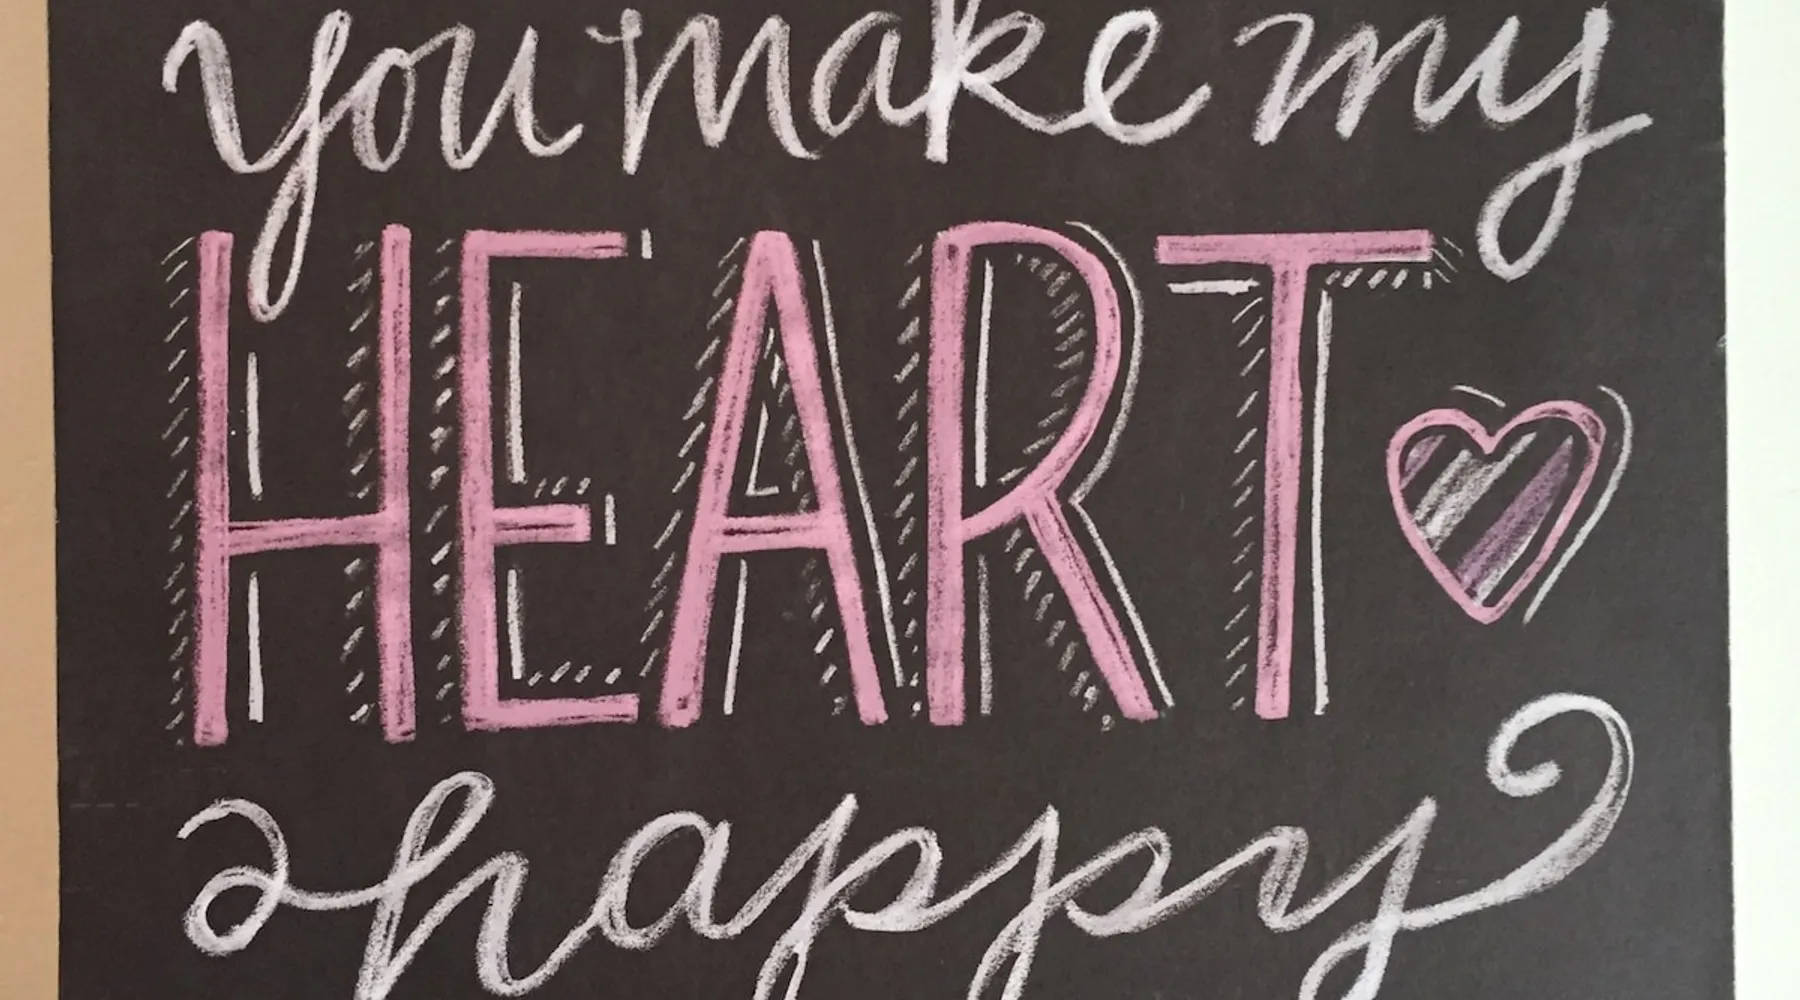 you make my
HEART
happy